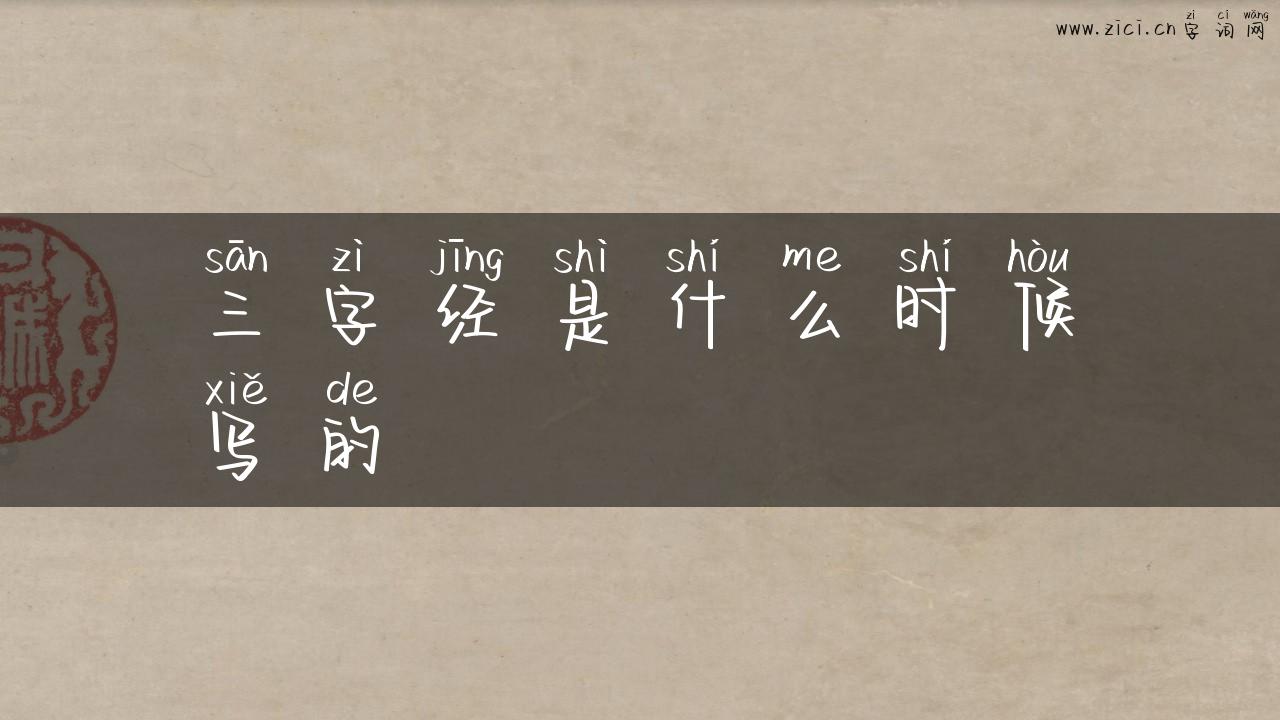 zì cí wǎng
www.zici.cn 字词网
sān zì jīng shì shí me shí hòu
三字经是什么时候
xiě de
写的